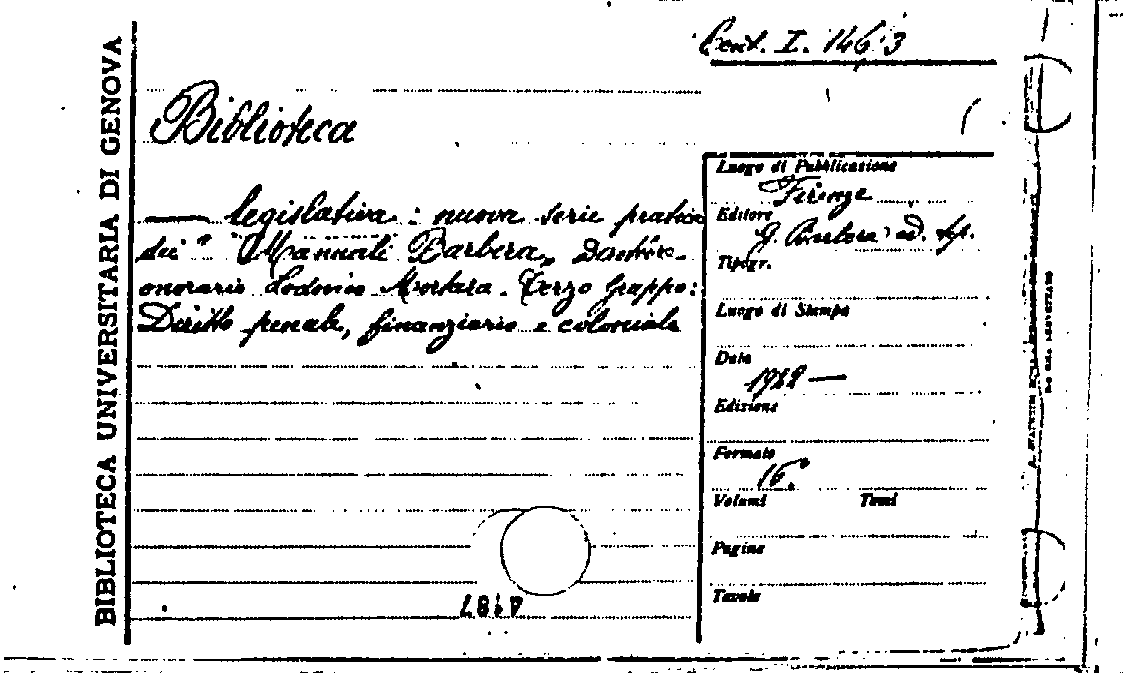 Cont. I. 146.3
BIBLIOTECA UNIVERSITARIA DI GENOVA
Biblioteca
— legislativa : nuova serie pratica
dei "Manuali Barbèra„ Direttore
onorario Lodovico Mortara. Terzo Gruppo:
Diritto penale, finanziario e coloniale
Luogo di Pubblicazione
Firenze
Editore
G. Barbèra ed. tip.
Tipogr.
Luogo di Stampa
Data
1922 —
Edizione
Formato
16°
Volumi Tomi
Pagine
Tavole